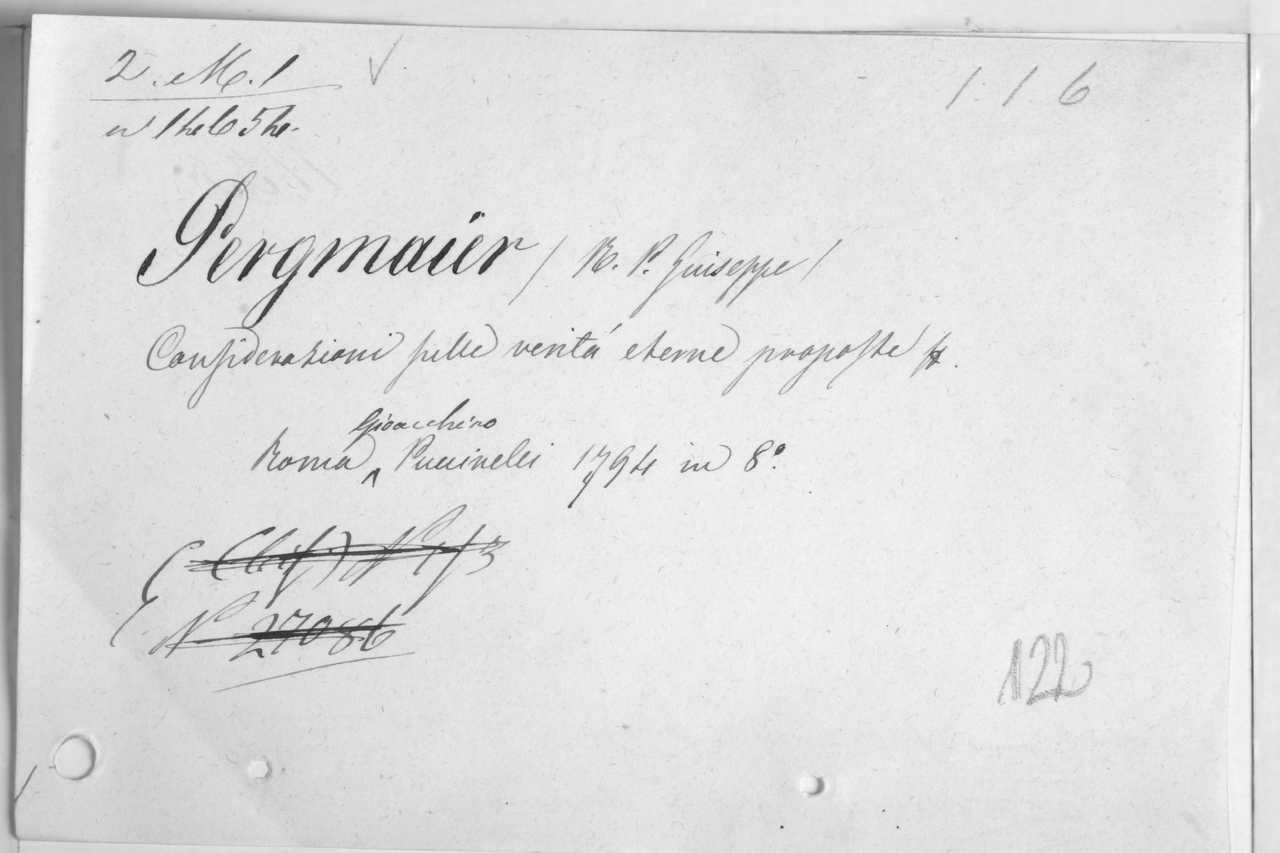 2. M. 1 1. 1 6
n° 14654.
Pergmaier / R. P. Giuseppe /
Considerazioni sulle verità eterne proposte
Gioacchino
Roma Puccinelli 1794 in 8°.
N° 27086
122